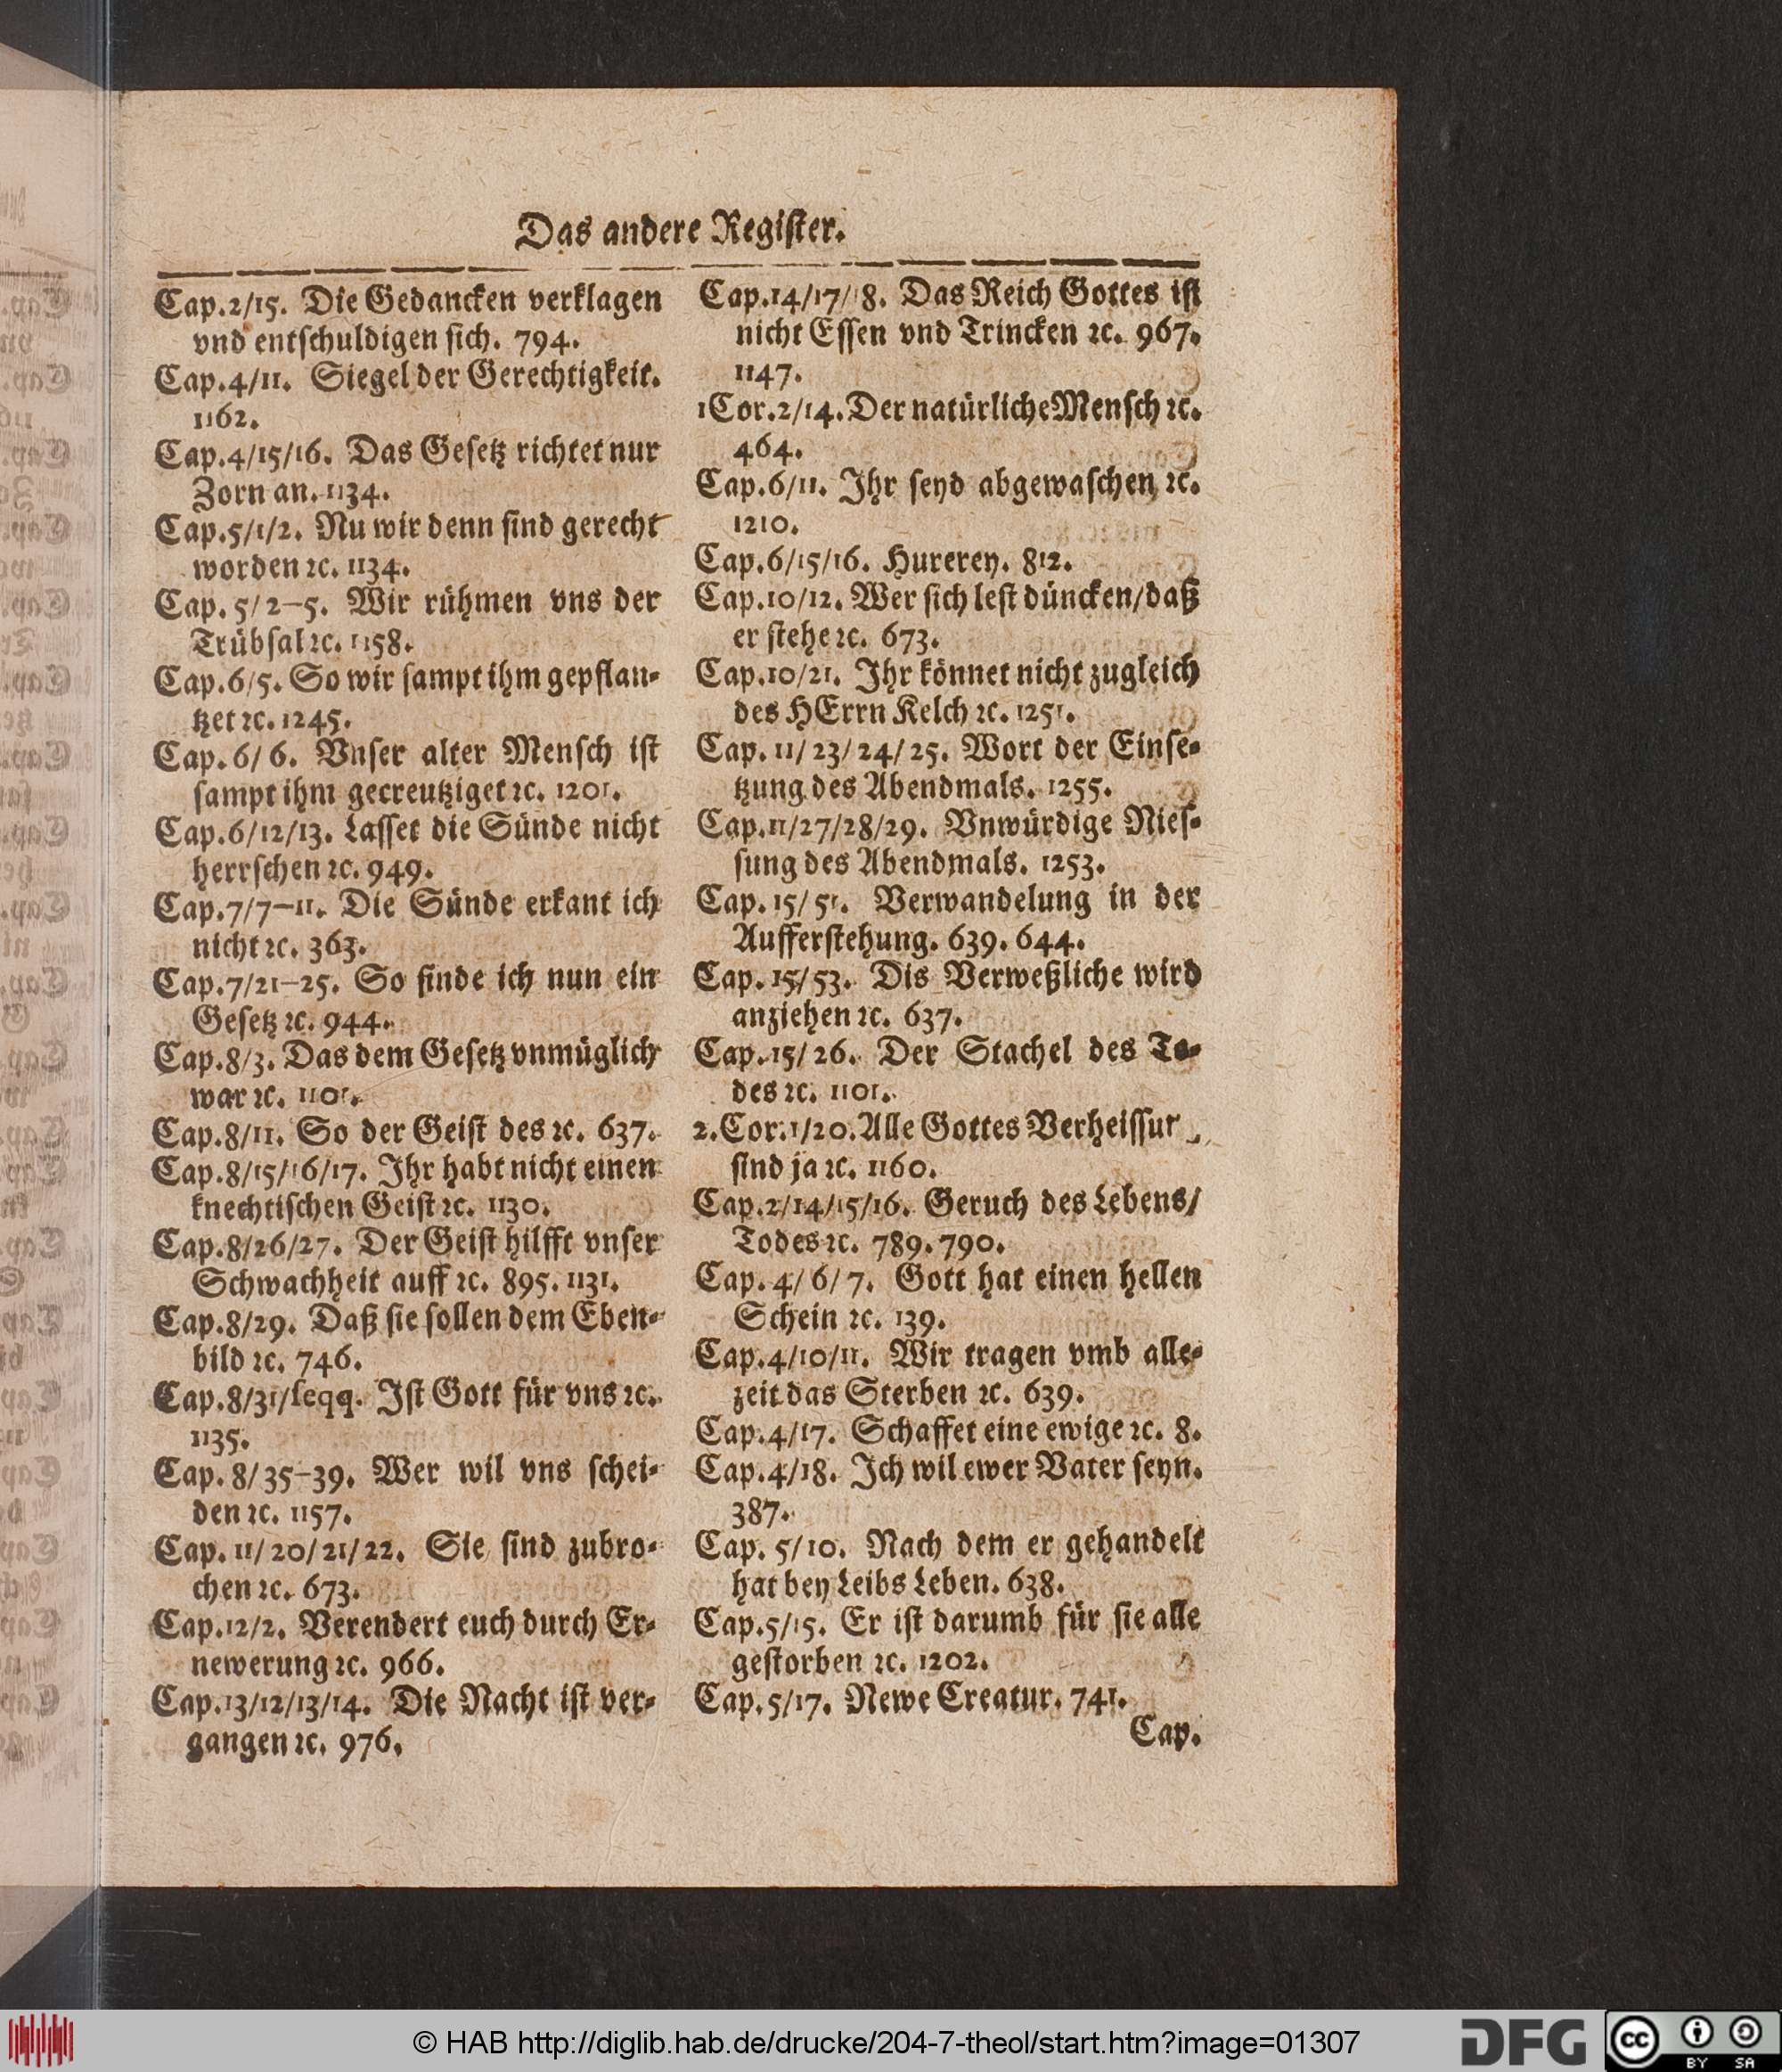 Das andere Register.
Cap.2/15. Die Gedancken verklagen
vnd entschuldigen sich. 794.
Cap.4/11. Siegel der Gerechtigkeit.
1162.
Cap.4/15/16. Das Gesetz richtet nur
Zorn an. 1134.
Cap.5/1/2. Nu wir denn sind gerecht
worden ꝛc. 1134.
Cap. 5/2–5. Wir rühmen vns der
Trübsal ꝛc. 1158.
Cap.6/5. So wir sampt ihm gepflan-
tzet ꝛc. 1245.
Cap.6/6. Vnser alter Mensch ist
sampt ihm gecreutziget ꝛc. 1201.
Cap.6/12/13. Lasset die Sünde nicht
herrschen ꝛc. 949.
Cap.7/7–11. Die Sünde erkant ich
nicht ꝛc. 363.
Cap.7/21–25. So finde ich nun ein
Gesetz ꝛc. 944.
Cap.8/3. Das dem Gesetz vnmüglich
war ꝛc. 1101.
Cap.8/11. So der Geist des ꝛc. 637.
Cap.8/15/16/17. Ihr habt nicht einen
knechtischen Geist ꝛc. 1130.
Cap.8/26/27. Der Geist hilfft vnser
Schwachheit auff ꝛc. 895. 1131.
Cap.8/29. Daß sie sollen dem Eben-
bild ꝛc. 746.
Cap.8/31/seqq. Ist Gott für vns ꝛc.
1135.
Cap. 8/35–39. Wer wil vns schei-
den ꝛc. 1157.
Cap. 11/20/21/22. Sie sind zubro-
chen ꝛc. 673.
Cap.12/2. Verendert euch durch Er-
newerung ꝛc. 966.
Cap.13/12/13/14. Die Nacht ist ver-
gangen ꝛc. 976.
Cap.14/17/18. Das Reich Gottes ist
nicht Essen vnd Trincken ꝛc. 967.
1147.
1Cor.2/14. Der natürliche Mensch ꝛc.
464.
Cap.6/11. Ihr seyd abgewaschen ꝛc.
1210.
Cap.6/15/16. Hurerey. 812.
Cap.10/12. Wer sich lest düncken/daß
er stehe ꝛc. 673.
Cap.10/21. Ihr könnet nicht zugleich
des HErrn Kelch ꝛc. 1251.
Cap. 11/23/24/25. Wort der Einse-
tzung des Abendmals. 1255.
Cap.11/27/28/29. Vnwürdige Nies-
sung des Abendmals. 1253.
Cap. 15/51. Verwandelung in der
Aufferstehung. 639. 644.
Cap. 15/53. Dis Verweßliche wird
anziehen ꝛc. 637.
Cap. 15/26. Der Stachel des To-
des ꝛc. 1101.
2.Cor.1/20. Alle Gottes
sind ja ꝛc. 1160.
Cap.2/14/15/16. Geruch des Lebens/
Todes ꝛc. 789. 790.
Cap. 4/6/7. Gott hat einen hellen
Schein ꝛc. 139.
Cap.4/10/11. Wir tragen vmb alle-
zeit das Sterben ꝛc. 639.
Cap.4/17. Schaffet eine ewige ꝛc. 8.
Cap.4/18. Ich wil ewer Vater seyn.
387.
Cap. 5/10. Nach dem er gehandelt
hat bey Leibs Leben. 638.
Cap.5/15. Er ist darumb für sie alle
gestorben ꝛc. 1202.
Cap.5/17. Newe Creatur. 741.
Cap.
© HAB http://diglib.hab.de/drucke/204-7-theol/start.htm?image=01307
DFG
cc
BY SA